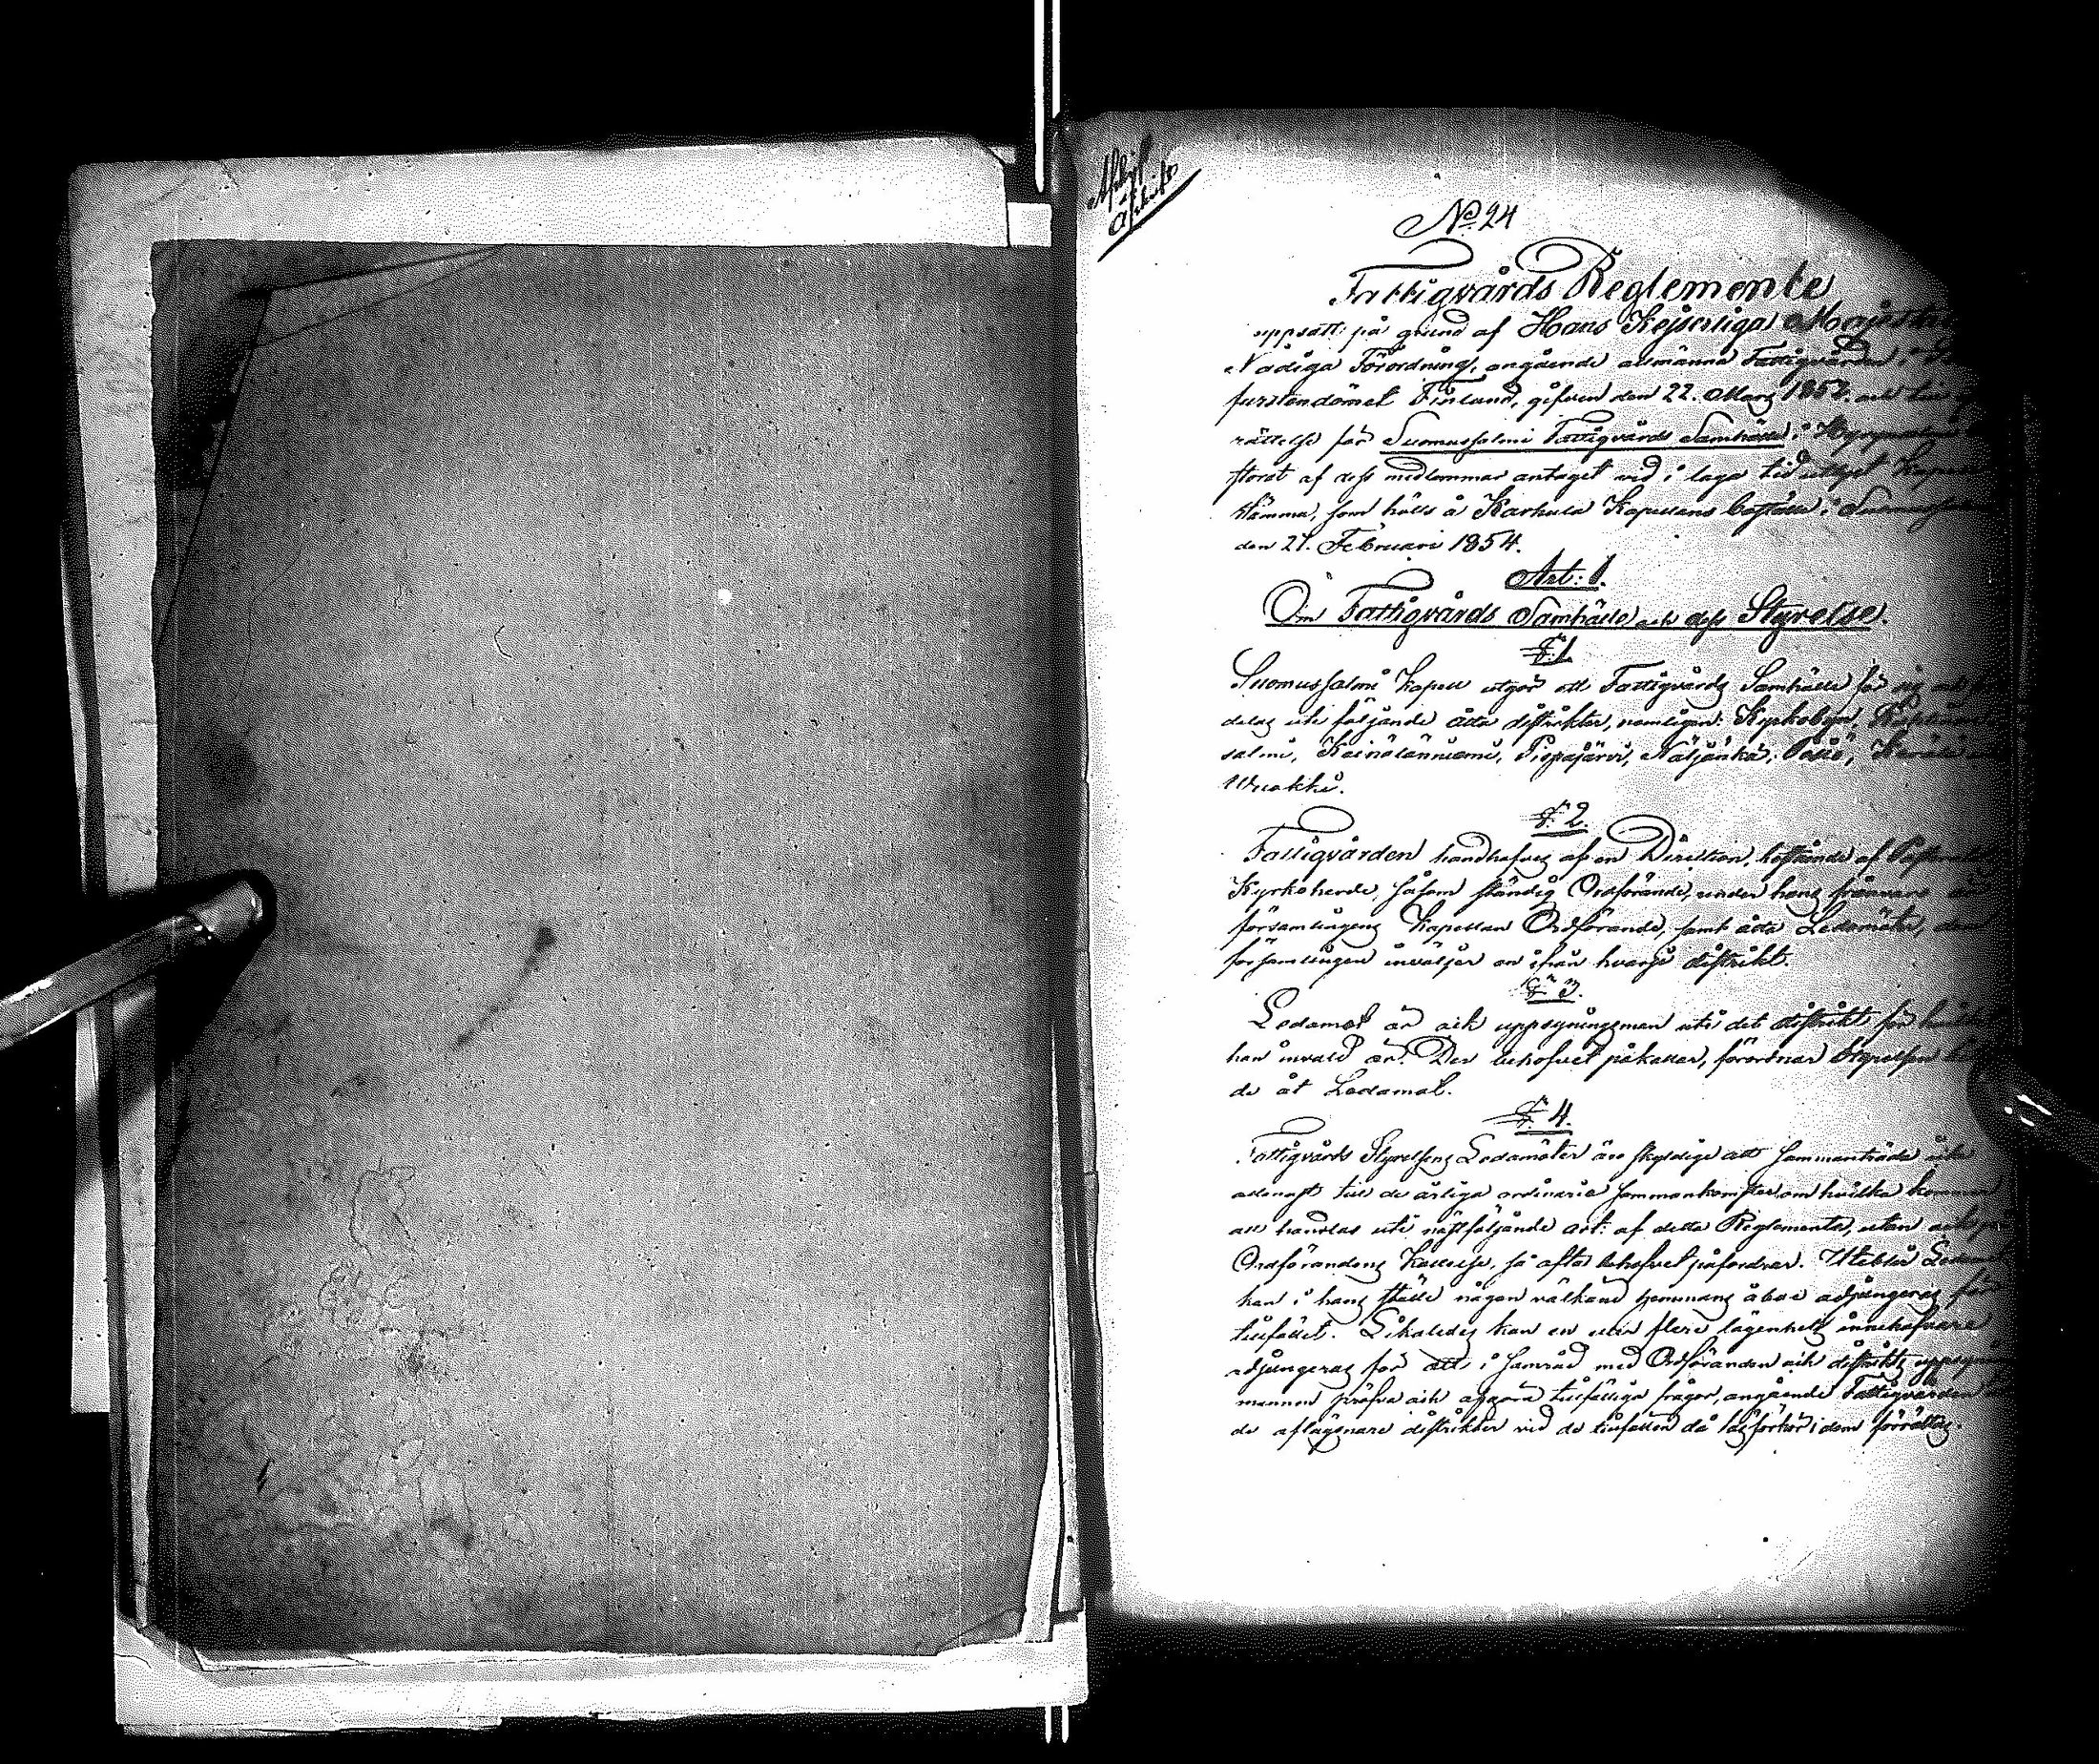 Afskrift
Afskrift
No 24
Fattigvårds Reglemente
uppsatt på grund af Hans Kejserliga Majestäts
Nådiga Förordning, angående allmänna Fattigvården i
furstendömet Finland, gifven den 22. Mars 1852. och till
rättelse för Suomussalmi Fattigvårds Samhälle i
storat af dess medlemmar antaget vid i laga tid utlyst
stämma, som hölls å Karhula Kapellans Boställe i
den 27. Februari 1854.
Art: 1.
Om Fattigvårds Samhälle och dess Styrelse.
§ 1
Suomussalmi Kapell utgör ett Fattigvårds Samhälle för sig och
delas uti följande åtta distrikter, nemligen: Kyrkobyn,
salmi, Keinälänniemi, Pispajärvi, Näljänkä,
Wuokki.
§ 2.
Fattigvården handhafves af en Direktion, bestående af
Kyrkoherde, såsom ständig Ordförande, under hans frånvaro
församlingens Kapellan Ordförande, samt åtta Ledamöter, dem
församlingen inväljer en ifrån hvarje distrikt.
§ 3.
Ledamot är ock uppsyningsman uti det distrikt för
han invald är. Der behofvet påkallar, förordnar Styrelsen
de åt Ledamot.
§ 4.
Fattigvårds Styrelsens Ledamöter äro skyldige att sammanträda icke
allenast till de årliga ordinarie sammankomster om hvilka kommer
att handlas uti nästföljande art: af detta Reglemente, utan ock på
Ordförandens Kallelse, så ofta behofvet påfordrar. Uteblir
kan i hans ställe någon välkänd hemmans åboe adjungeras för
tillfället. Likaledes kan en eller flere lägenhets innehafvare
adjungeras för att i samråd med Ordföranden och distrikts
mannen pröfva och afgöra tillfälliga frågor, angående Fattigvården
de aflägsnare distrikter vid de tillfällen då läsförhör i dem förrättas.